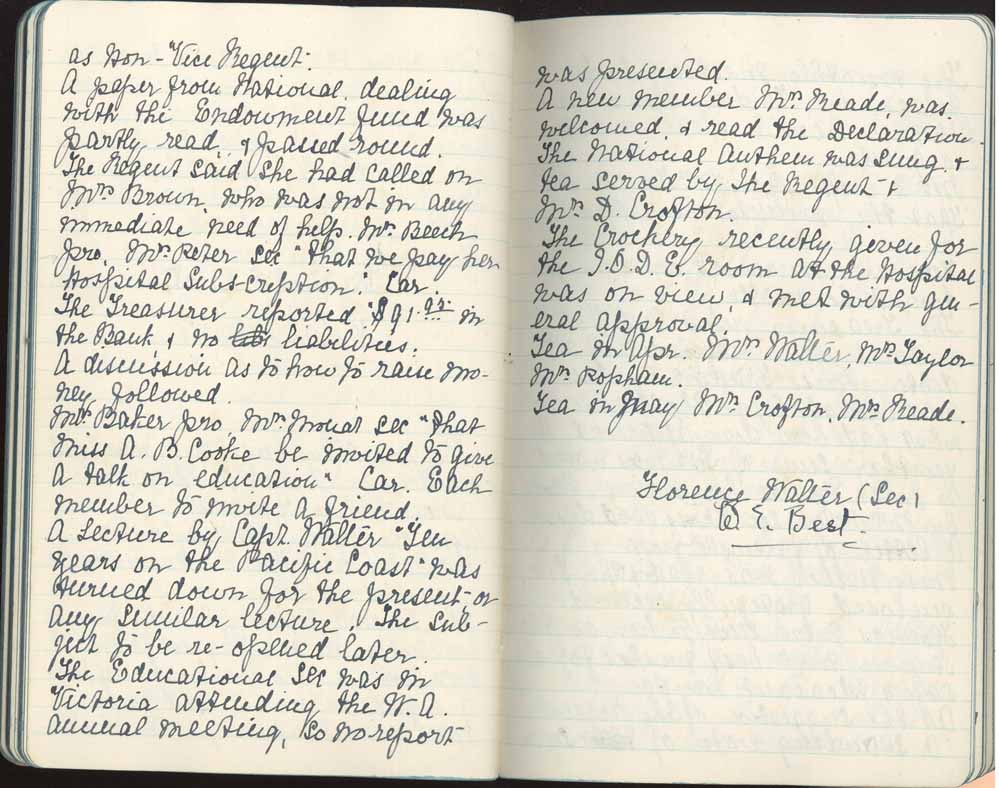 as Hon-Vice Regent.
A paper from National, dealing
with the Endowment fund was
partly read, & passed round.
The Regent said she had called on
Mrs Brown, who was not in any
immediate need of help. Mrs Beech
pro, Mrs Peter sec "that we pay her
Hospital Subscription". Car.
The Treasurer reported $91. in
the Bank & no liabilities.
A discussion as to how to raise mo-
ney followed.
Mrs Baker pro Mrs Mouat sec "that
Miss A. B. Cooke be invited to give
a talk on education" Car. Each
member to invite a friend.
A Lecture by Capt. Walter "Ten
years on the Pacific Coast" was
turned down for the present or
any similar lecture. The sub-
ject to be re-opened later.
The Educational Sec was in
Victoria attending the W.A.
annual meeting, so no report
was presented.
A new member Mrs Reade, was
welcomed, & read the Declaration.
The National Anthem was sung &
tea served by the Regent &
Mrs D. Crofton.
The Crockery recently given for
the I.O.D.E. room at the Hospital
was on view & met with gen-
eral approval.
Tea in Apr. Mrs Walter, Mrs Taylor
Mrs Popham.
Tea in May Mrs Crofton, Mrs Reade.
Florence Walter (Sec)
E. Best.